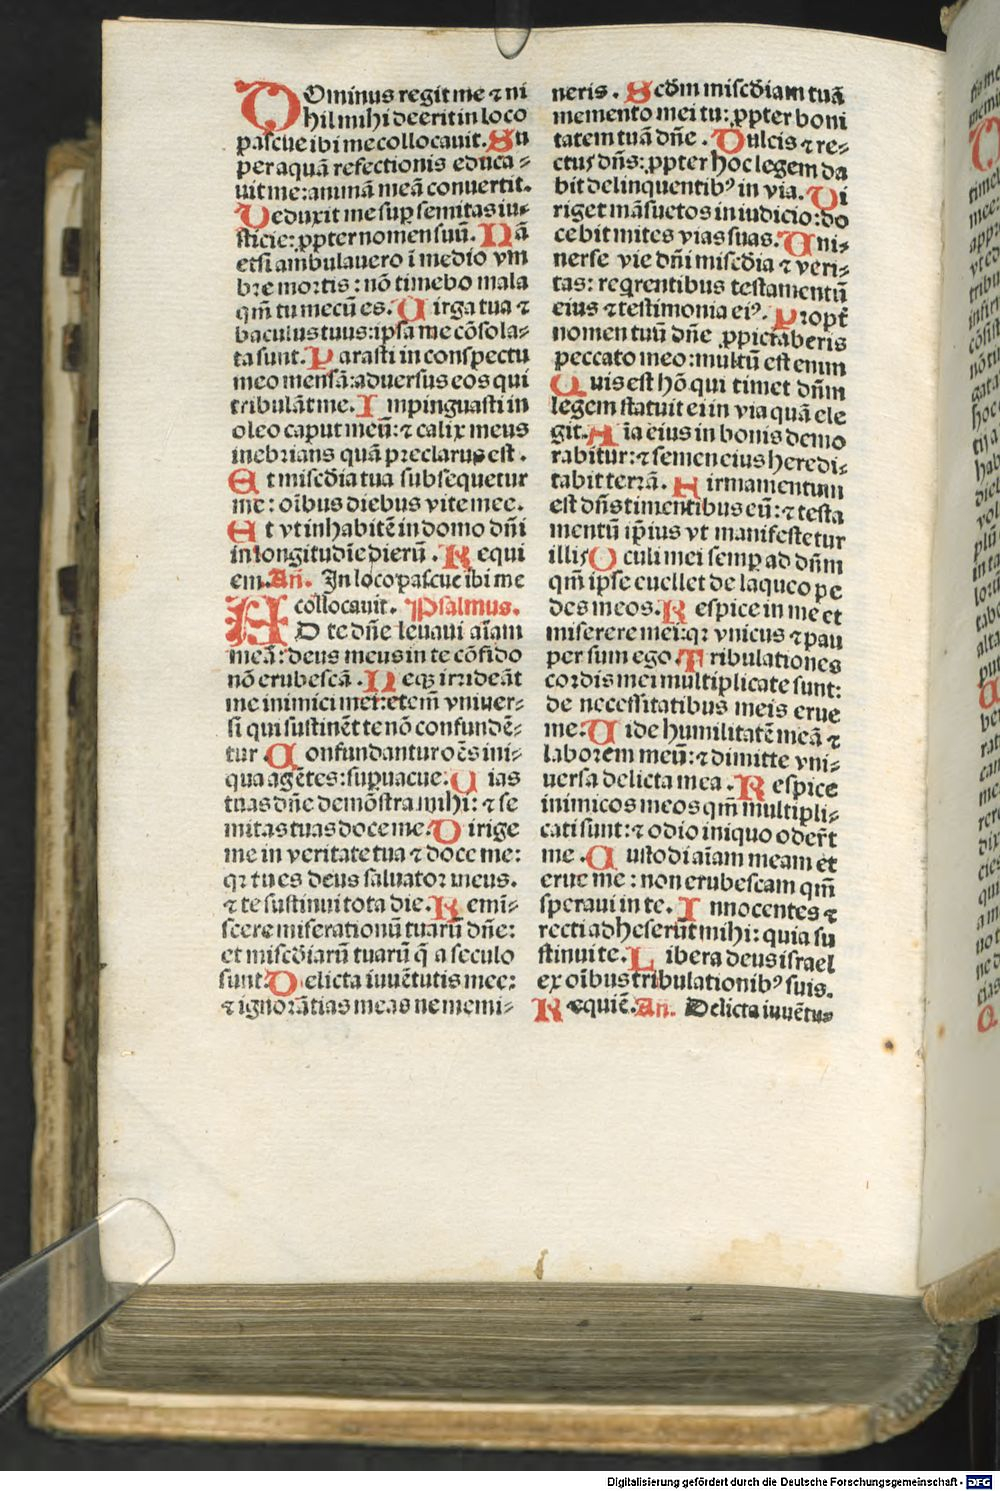 DOminus regit me ⁊ ni
hil mihi deerit in loco
pascue ibi me collocauit. Su
per aquā refectionis educa⸗
uit me: animā meā conuertit.
Deduxit me sup semitas iu⸗
sticie: ꝓpter nomen suū. Nā
etsi ambulauero ī medio vm
bre mortis: nō timebo mala
qm̄ tu mecū es. Uirga tua ⁊
baculus tuus: ipsa me cōsola⸗
ta sunt. Parasti in conspectu
meo mensā: aduersus eos qui
tribulāt me. Impinguasti in
oleo caput meū: ⁊ calix meus
inebrians quā preclarus est.
Et misc̄dia tua subsequetur
me: oībus diebus vite mee.
Et vt inhabitē in domo dn̄i
in longitudīe dierū. Requi
em. An̄. In loco pascue ibi me
collocauit. Psalmus.
AD te dn̄e leuaui aīam
meā: deus meus in te cōfido
nō erubescā. Neqꝫ irrideāt
me inimici mei: etem̄ vniuer⸗
si qui sustinēt te nō confundē⸗
tur. Confundantur oēs ini⸗
qua agētes: supuacue. Uias
tuas dn̄e demōstra mihi: ⁊ se
mitas tuas doce me. Dirige
me in veritate tua ⁊ doce me:
qꝛ tu es deus saluator meus.
⁊ te sustinui tota die. Remi⸗
scere miserationū tuarū dn̄e:
et misc̄diarū tuarū q̄ a seculo
sunt. Delicta iuuētutis mee:
⁊ ignorātias meas ne memi⸗
neris. Scd̄m misc̄diam tuā
memento mei tu: ꝓpter boni
tatem tuā dn̄e. Dulcis ⁊ re⸗
ctus dn̄s: ꝓpter hoc legem da
bit delinquentibꝰ in via. Di
riget māsuetos in iudicio: do
cebit mites vias suas. Uni⸗
uerse vie dn̄i misc̄dia ⁊ veri⸗
tas: reqrentibus testamentū
eius ⁊ testimonia eiꝰ. Propt̄
nomen tuū dn̄e ꝓpiciaberis
peccato meo: multū est enim
Quis est hō qui timet dn̄m
legem statuit ei in via quā ele
git. Aīa eius in bonis demo
rabitur: ⁊ semen eius heredi⸗
tabit terrā. Firmamentum
est dn̄s timentibus eū: ⁊ testa
mentū ip̄ius vt manifestetur
illis Oculi mei semp ad dn̄m
qm̄ ipse euellet de laqueo pe
des meos. Respice in me et
miserere mei: qꝛ vnicus ⁊ pau
per sum ego. Tribulationes
cordis mei multiplicate sunt:
de necessitatibus meis erue
me. Uide humilitatē meā ⁊
laborem meū: ⁊ dimitte vni⸗
uersa delicta mea. Respice
inimicos meos qm̄ multipli⸗
cati sunt: ⁊ odio iniquo oder̄t
me. Custodi aīam meam et
erue me: non erubescam qm̄
speraui in te. Innocentes ⁊
recti adheserūt mihi: quia su
stinui te. Libera deus israel
ex oībus tribulationibꝰ suis.
Requiē. An̄. Delicta iuuētu⸗
Digitalisierung gefördert durch die Deutsche Forschungsgemeinschaft - DFG